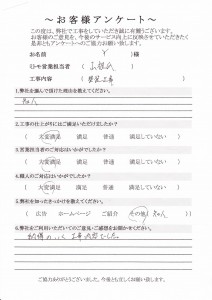 ～お客様アンケート～
この度は、弊社で工事をしていただき誠に有難うございます。
お客様のご意見を、今後のサービス向上に反映させていただきたく
是非ともアンケートへのご協力お願い致します。
お名前 Y 様
リモ営業担当者
工事内容
1.弊社を選んで頂けた理由を教えてください。
知人
2.工事の仕上がりにはご満足いただけましたか?
( 大変満足 満足 普通 満足していない )
3.営業担当者のご対応はいかがでしたか?
( 大変満足 満足 普通 満足していない )
4.職人のご対応はいかがでしたか?
( 大変満足 満足 普通 満足していない )
5.弊社を知ったきっかけを教えてください。
( 広告 ホームページ ご紹介 その他 知人 )
6.弊社をご利用いただいてのご意見・ご感想をお聞かせください。
納得のいく工事内容でした。
ご協力ありがとうございました。今後とも宜しくお願い致します。